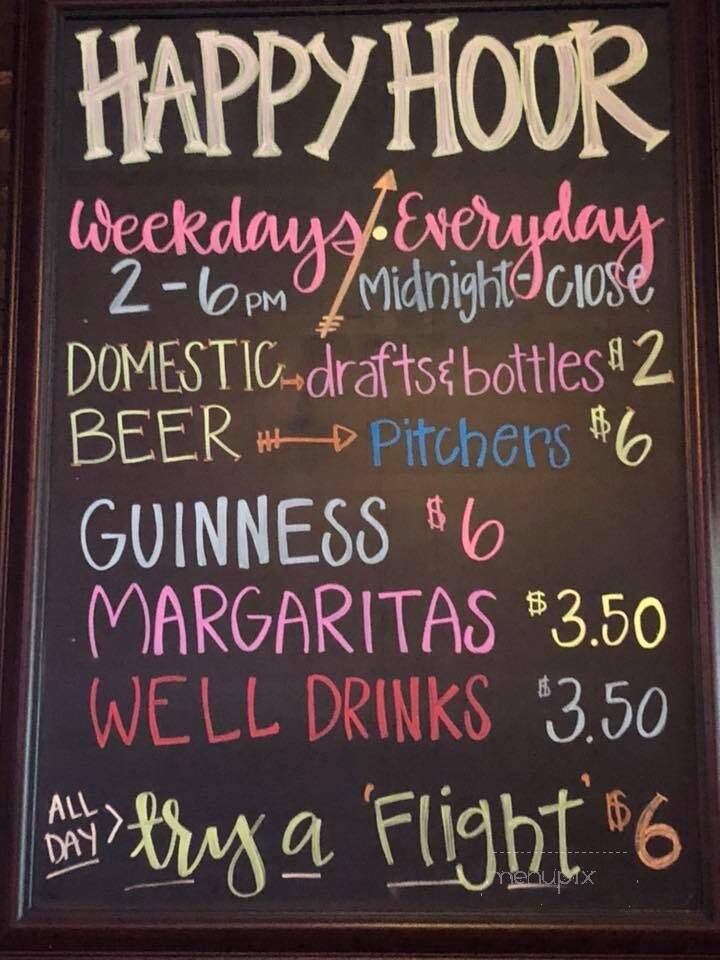 HAPPY HOUR
Weekdays • Everyday
2-6PM Midnight-Close
DOMESTIC drafts & bottles $2
BEER Pitchers $6
GUINNESS $6
MARGARITAS $3.50
WELL DRINKS $3.50
ALL DAY > try a 'Flight' $6
menupix